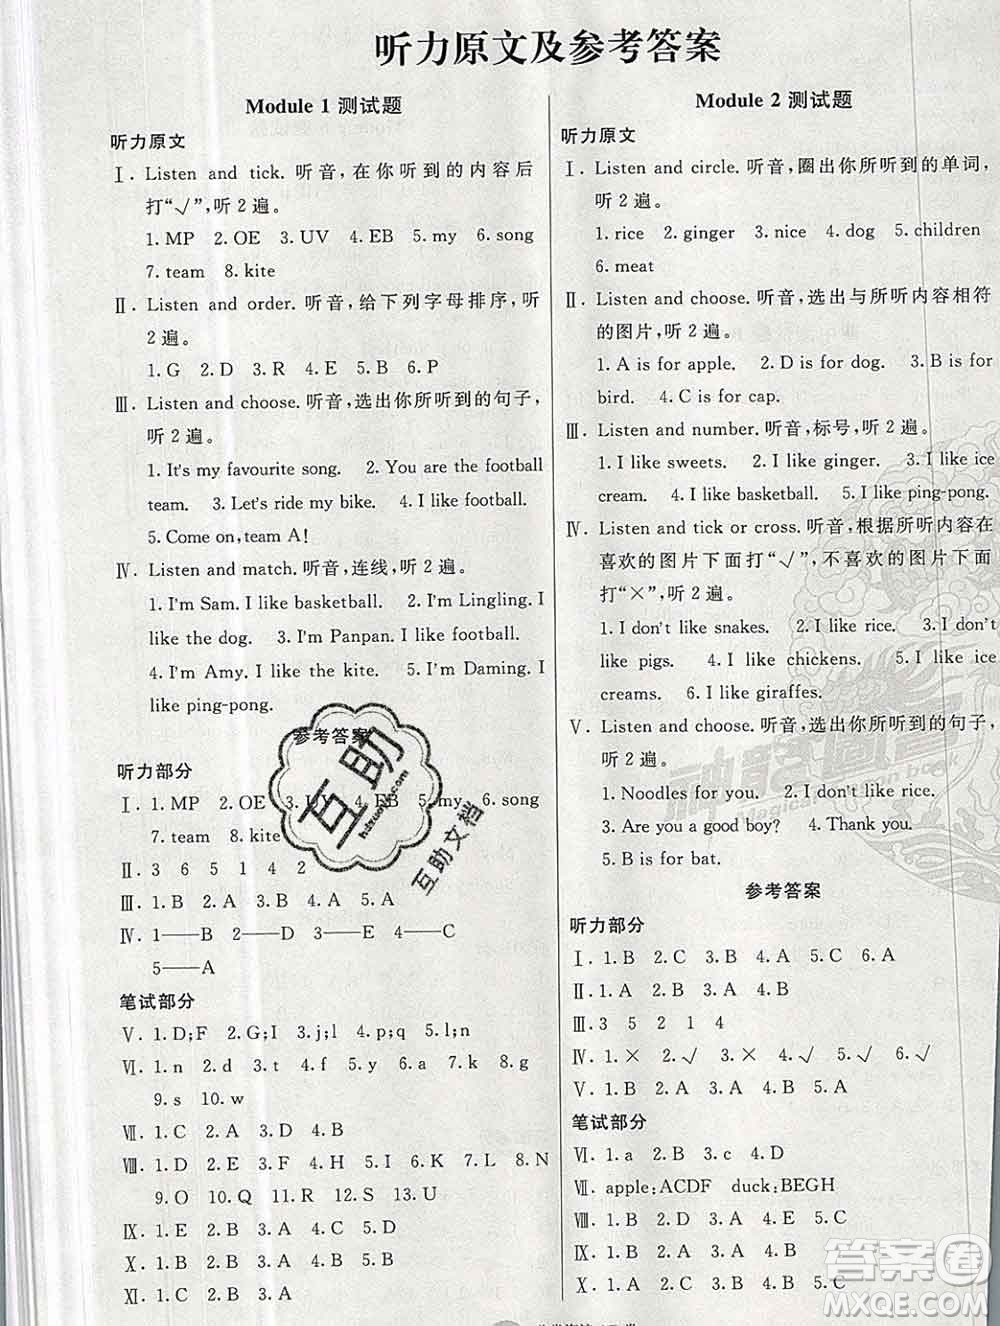 听力原文及参考答案
Module 1 测试题
听力原文
Ⅰ. Listen and tick. 听音,在你听到的内容后
打“√”,听 2 遍。
1. MP 2. OE 3. UV 4. EB 5. my 6. song
7. team 8. kite
Ⅱ. Listen and order. 听音,给下列字母排序,听
2 遍。
1. G 2. D 3. R 4. E 5. B 6. P
Ⅲ. Listen and choose. 听音,选出你所听到的句子,
听 2 遍。
1. It's my favourite song. 2. You are the football
team. 3. Let's ride my bike. 4. I like football.
5. Come on, team A!
Ⅳ. Listen and match. 听音,连线,听 2 遍。
1. I'm Sam. I like basketball. 2. I'm Lingling. I
like the dog. 3. I'm Panpan. I like football.
4. I'm Amy. I like the kite. 5. I'm Daming. I
like ping-pong.
参考答案
听力部分
Ⅰ. 1. MP 2. OE 3. UV 4. EB 5. my 6. song
7. team 8. kite
Ⅱ. 3 6 5 1 4 2
Ⅲ. 1. B 2. A 3. B 4. A 5. A
Ⅳ. 1——B 2——D 3——E 4——C
5——A
笔试部分
Ⅴ. 1. D;F 2. G;I 3. j;l 4. p;q 5. l;n
Ⅵ. 1. n 2. d 3. y 4. f 5. m 6. k 7. o 8. g
9. s 10. w
Ⅶ. 1. C 2. A 3. D 4. B
Ⅷ. 1. D 2. E 3. F 4. H 5. I 6. K 7. L 8. N
9. O 10. Q 11. R 12. S 13. U
Ⅸ. 1. E 2. B 3. A 4. C 5. D
Ⅹ. 1. B 2. B 3. A 4. A 5. B
Ⅺ. 1. C 2. A 3. D 4. B
Module 2 测试题
听力原文
Ⅰ. Listen and circle. 听音,圈出你所听到的单词,
听 2 遍。
1. rice 2. ginger 3. nice 4. dog 5. children
6. meat
Ⅱ. Listen and choose. 听音,选出与所听内容相符
的图片,听 2 遍。
1. A is for apple. 2. D is for dog. 3. B is for
bird. 4. C is for cap.
Ⅲ. Listen and number. 听音,标号,听 2 遍。
1. I like sweets. 2. I like ginger. 3. I like ice
cream. 4. I like basketball. 5. I like ping-pong.
Ⅳ. Listen and tick or cross. 听音,根据所听内容在
喜欢的图片下面打“√”,不喜欢的图片下面
打“×”,听 2 遍。
1. I don't like snakes. 2. I like rice. 3. I don't
like pigs. 4. I like chickens. 5. I like ice
creams. 6. I like giraffes.
Ⅴ. Listen and choose. 听音,选出你所听到的句子,
听 2 遍。
1. Noodles for you. 2. I don't like rice.
3. Are you a good boy? 4. Thank you.
5. B is for bat.
参考答案
听力部分
Ⅰ. 1. B 2. C 3. B 4. A 5. C 6. A
Ⅱ. 1. A 2. A 3. B 4. B
Ⅲ. 3 5 2 1 4
Ⅳ. 1. × 2. √ 3. × 4. √ 5. √ 6. √
Ⅴ. 1. B 2. A 3. A 4. B 5. B
笔试部分
Ⅵ. 1. a 2. b 3. c 4. d
Ⅶ. apple:ACDF duck:BEGH
Ⅷ. 1. B 2. D 3. A 4. C
Ⅸ. 1. B 2. B 3. A 4. A 5. A
Ⅹ. 1. B 2. A 3. B 4. A 5. B
互助
hdzuoye.com
互助文档
神龙智慧
答案圈
MXQE.COM